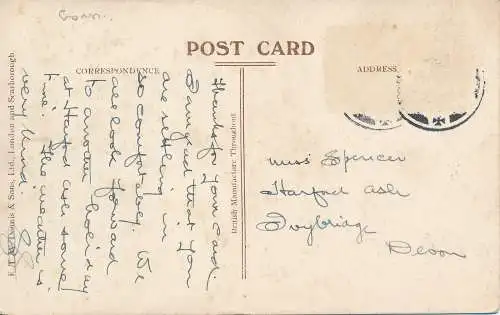 Corn.
POST CARD
CORRESPONDENCE
ADDRESS
Thanks for your card.
I am glad that you
are settling in
so comfortably. We
are look forward
to another holiday
at Harford Ash some
time. The weather is
very kind.
E. T. W. Dennis & Sons, Ltd., London and Scarborough.
British Manufacture Throughout
Miss Spencer
Harford Ash
Ivybridge
Devon